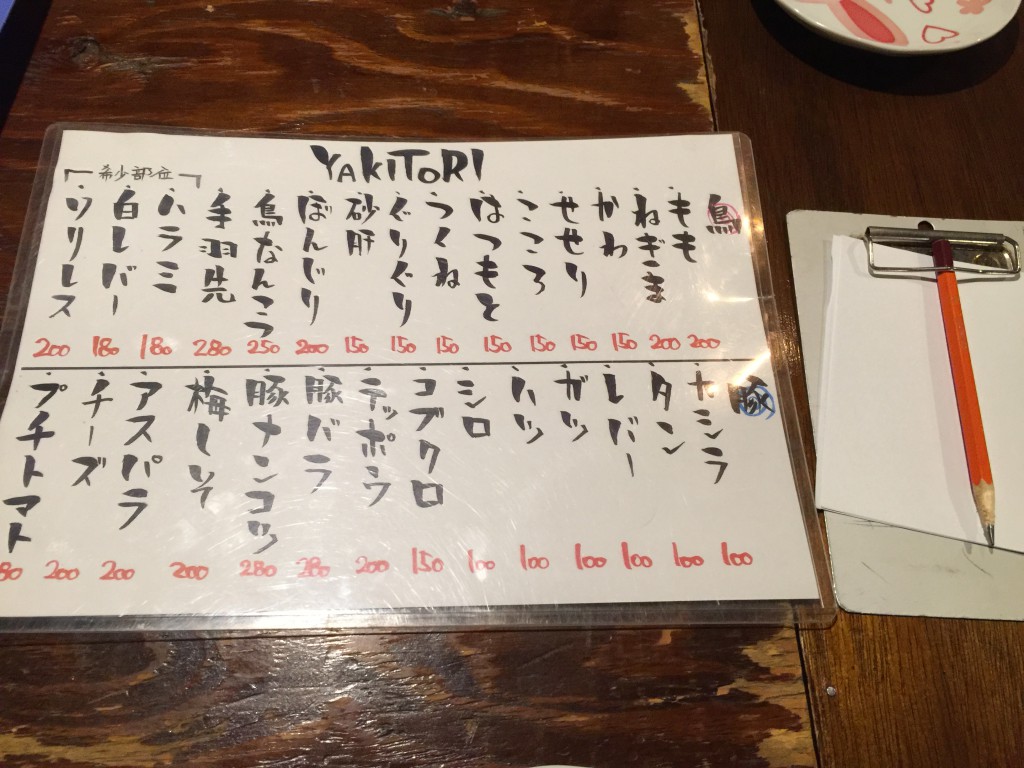 YAKITORI
鳥
もも 200
ねぎま 200
かわ 150
せせり 150
こころ 150
はつもと 150
つくね 150
ぐりぐり 150
砂肝 150
ぼんじり 200
鳥なんこつ 250
手羽先 280
希少部位
ハラミ 180
白レバー 180
ソリレス 200
豚
カシラ 100
タン 100
レバー 100
ガツ 100
ハツ 100
シロ 100
コブクロ 150
テッポウ 200
豚バラ 280
豚ナンコツ 280
梅しそ 200
アスパラ 200
チーズ 200
プチトマト